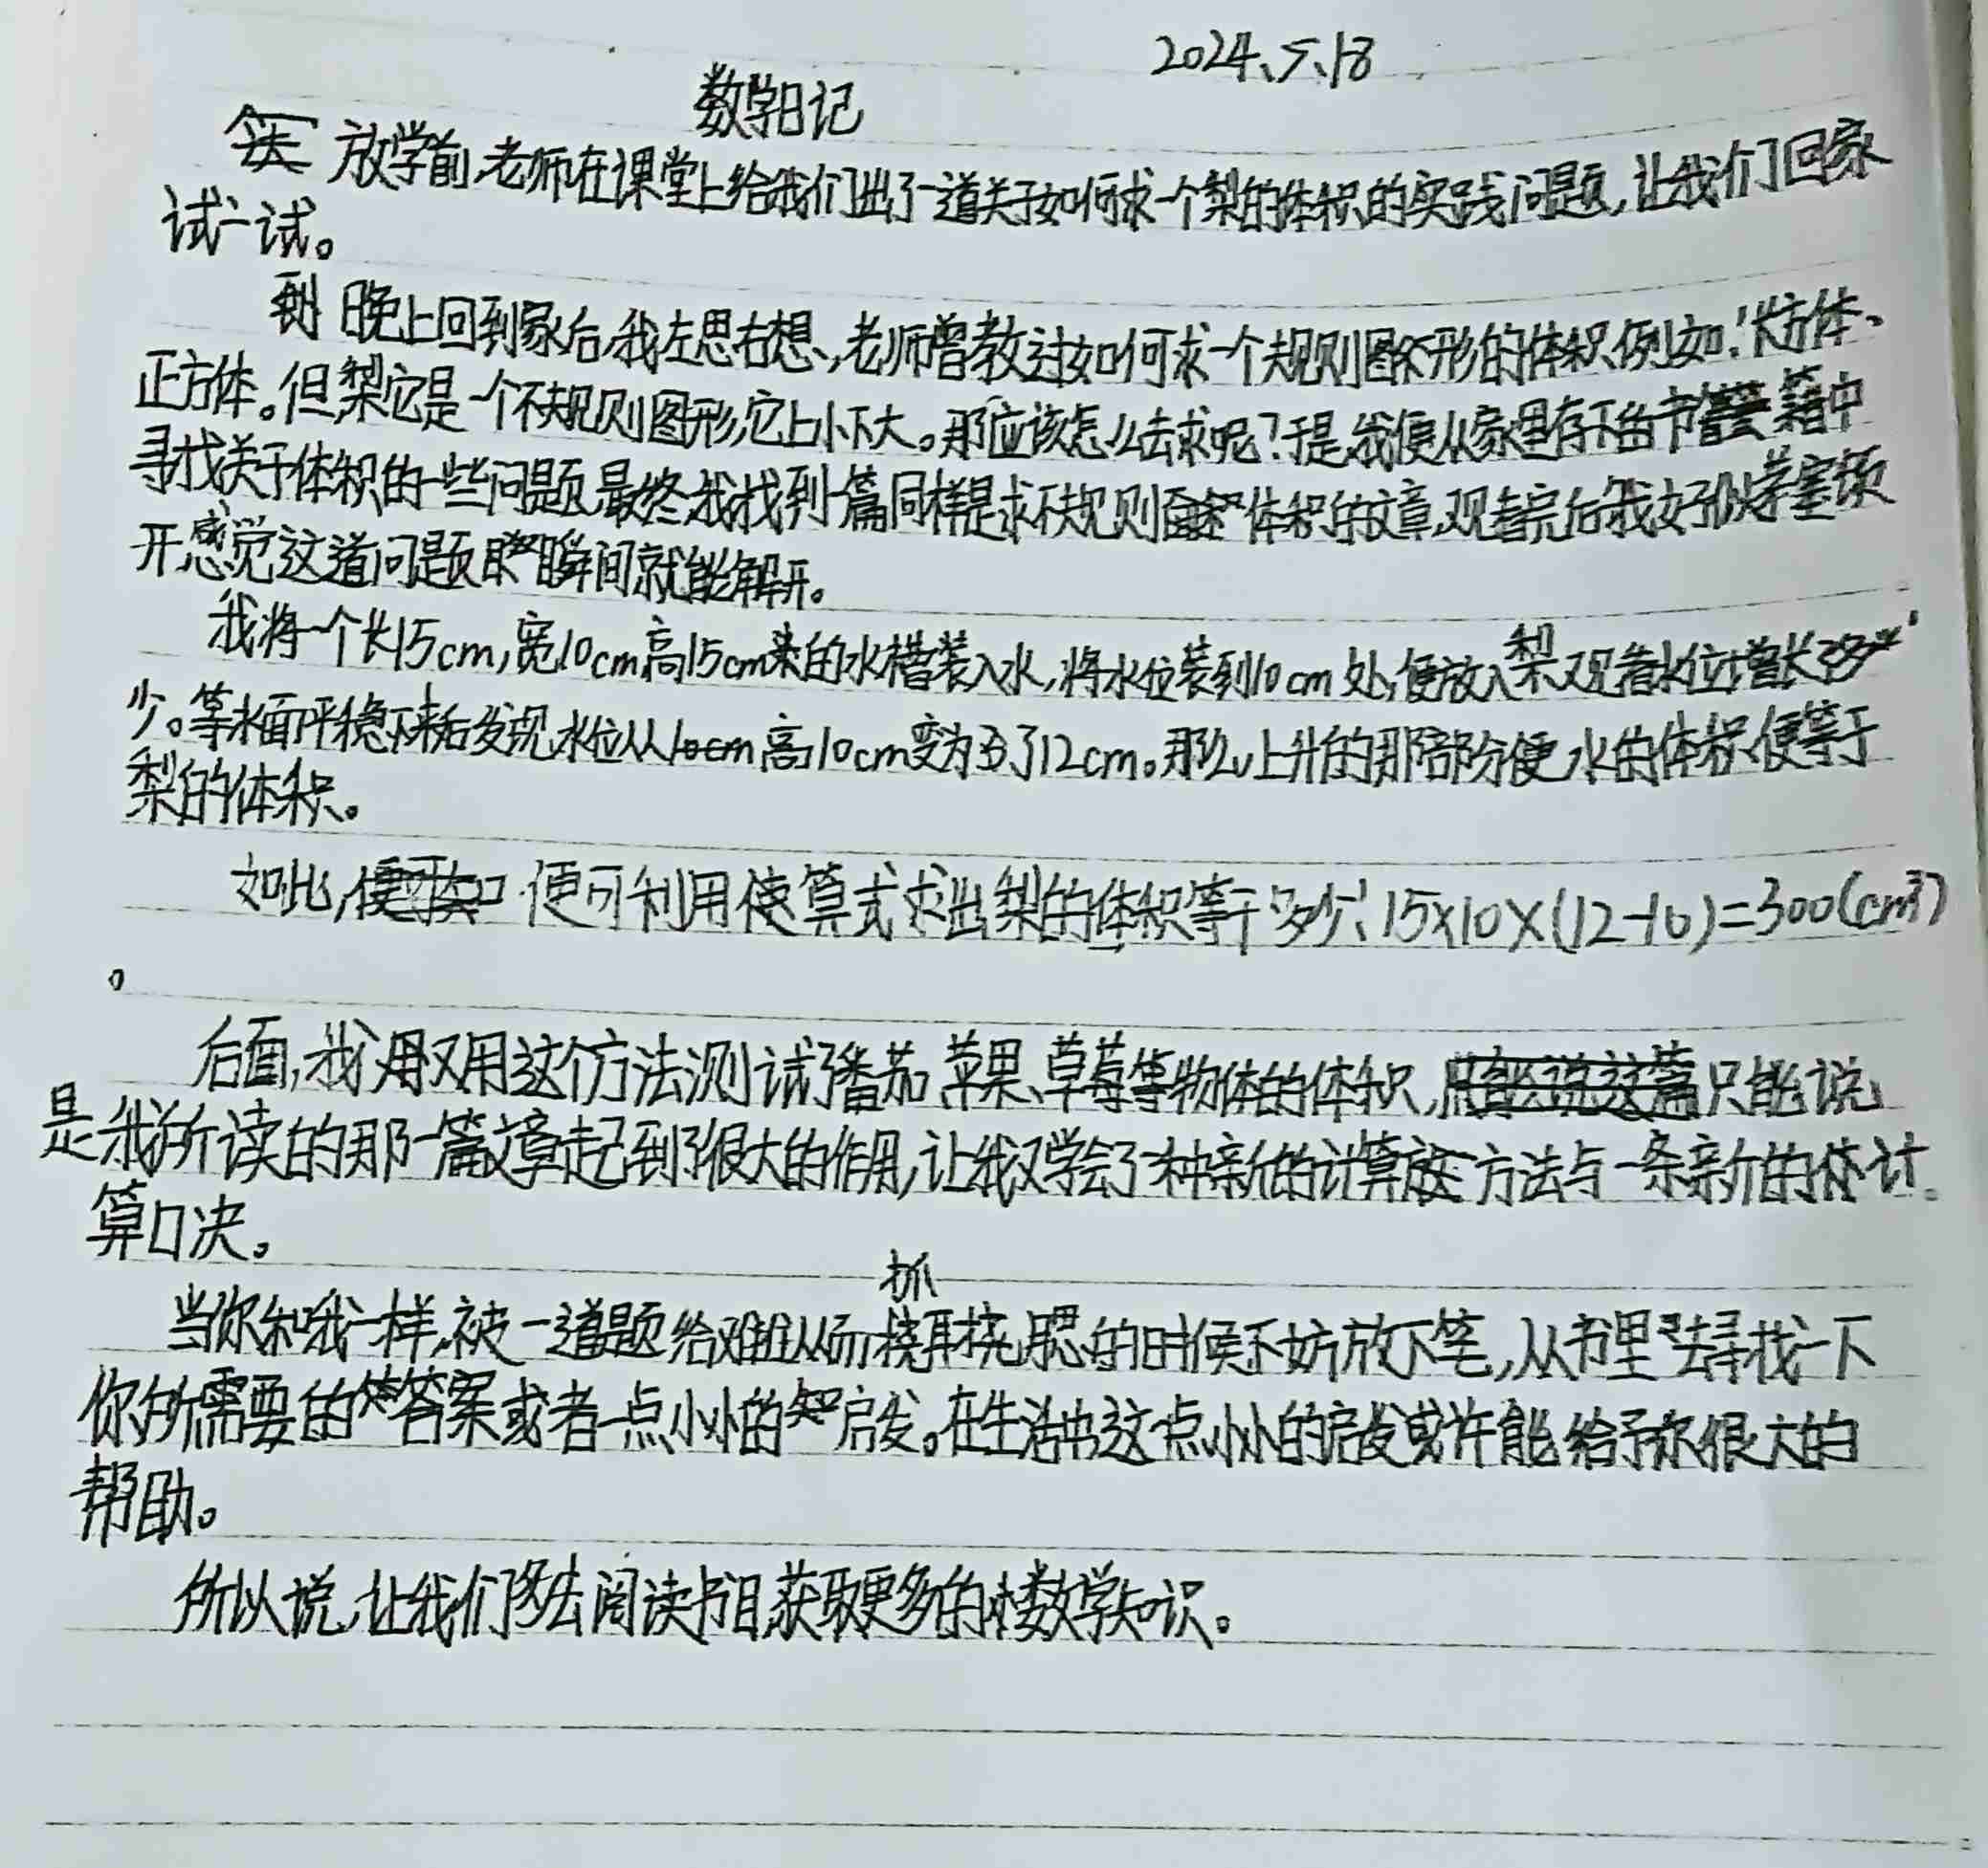 2024、5、18
数学日记
放学前,老师在课堂上给我们出了一道关于如何求一个梨的体积的实践问题,让我们回家
试一试。
晚上回到家后,我左思右想,老师曾教过如何求一个规则图形的体积,例如:长方体、
正方体。但梨它是一个不规则图形,它上小下大。那应该怎么去求呢?于是,我便从家里存下的书籍中
寻找关于体积的一些问题,最终我找到一篇同样是求不规则体积的文章,观看完后我好似茅塞顿
开,感觉这道问题瞬间就能解开。
我将一个长15cm,宽10cm高15cm的水槽装入水,将水位装到10cm处,便放入梨,观看水位增长多
少。等水面平稳下来后发现,水位从高10cm变为了12cm。那么上升的那部分水的体积,便等于
梨的体积。
如此,便可利用算式求出梨的体积等于多少:15×10×(12-10)=300(cm³)
。
后面,我又用这个方法测试了番茄、苹果、草莓等物体的体积,只能说
是我所读的那一篇文章起到了很大的作用,让我又学会了一种新的计算方法与一条新的计
算口决。
当你和我一样,被一道题给难住从而抓耳挠腮的时候不妨放下笔,从书里去寻找一下
你所需要的答案或者一点小小的启发。在生活中这一点小小的启发或许能给予你很大的
帮助。
所以说,让我们多去阅读书目,获取更多的数学知识。